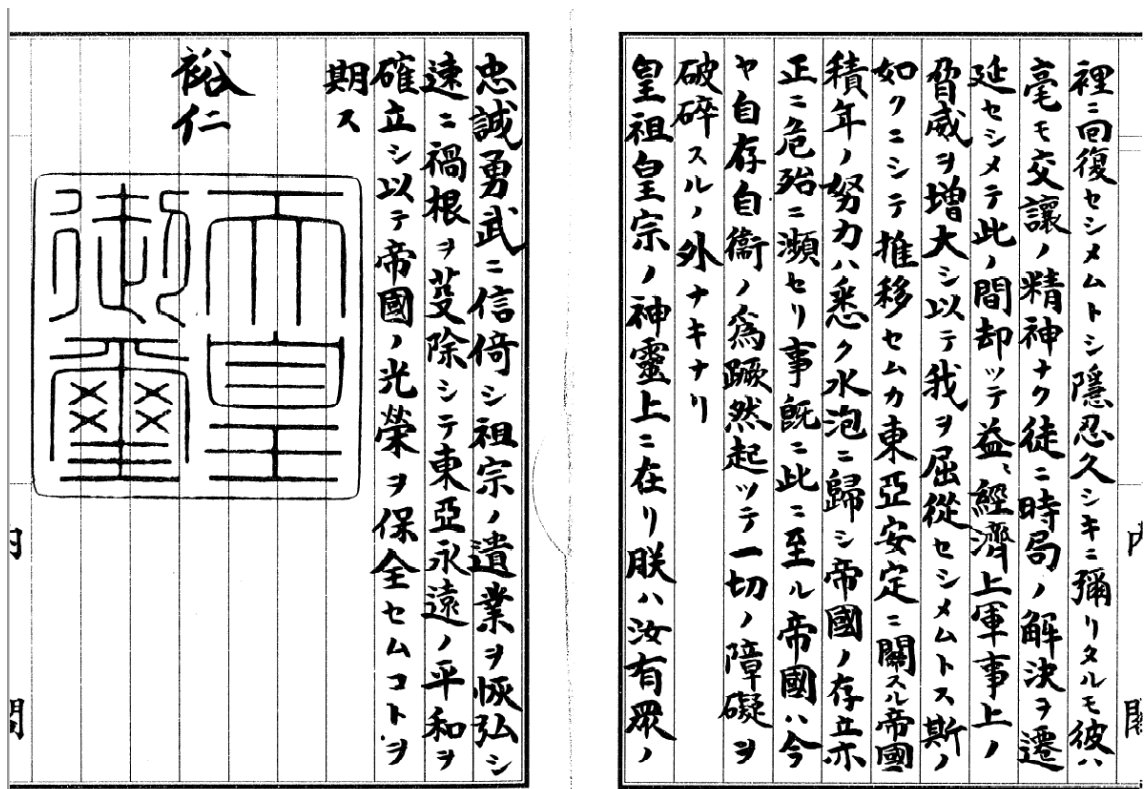 裡ニ囘復セシメムトシ隱忍久シキニ彌リタルモ彼ハ
毫モ交讓ノ精神ナク徒ニ時局ノ解決ヲ遷
延セシメテ此ノ間却ッテ益〻經濟上軍事上ノ
脅威ヲ增大シ以テ我ヲ屈從セシメムトス斯ノ
如クニシテ推移セムカ東亞安定ニ關スル帝國
積年ノ努力ハ悉ク水泡ニ歸シ帝國ノ存立亦
正ニ危殆ニ瀕セリ事既ニ此ニ至ル帝國ハ今
ヤ自存自衞ノ爲蹶然起ッテ一切ノ障礙ヲ
破碎スルノ外ナキナリ
皇祖皇宗ノ神靈上ニ在リ朕ハ汝有眾ノ
忠誠勇武ニ信倚シ祖宗ノ遺業ヲ恢弘シ
速ニ禍根ヲ芟除シテ東亞永遠ノ平和ヲ
確立シ以テ帝國ノ光榮ヲ保全セムコトヲ
期ス
裕仁
天皇
御璽
內
閣